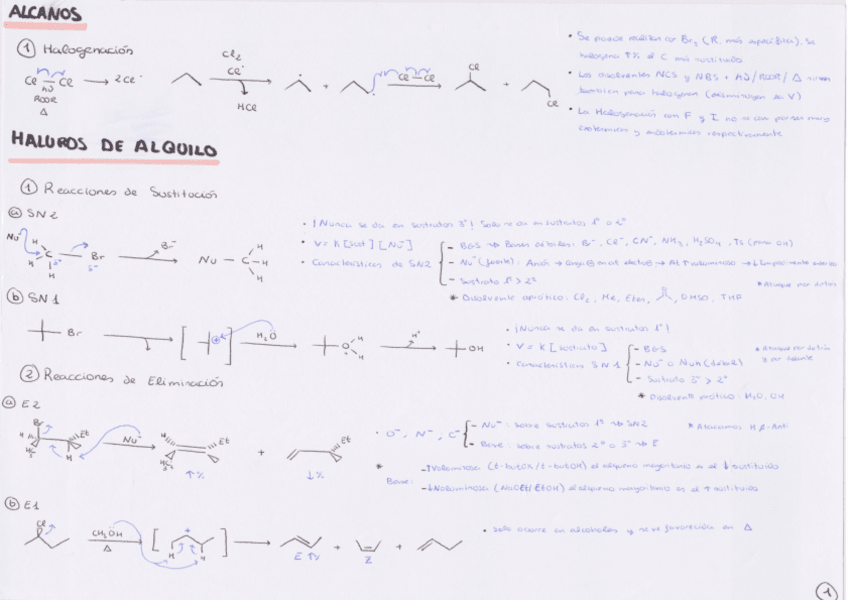 ALCANOS
① Halogenación
Cl₂
Cl — Cl → 2Cl·
hν
ROOR
Δ
Cl·
HCl
+
Cl — Cl
Cl
+
Cl
• Se puede realizar con Br₂ (R. más específica). Se
halogena ↑% el C más sustituido
• Los disolventes NCS y NBS + hν/ROOR/Δ sirven
también para halogenar (disminuyen la V)
• La Halogenación con F y I no se da por ser muy
exotérmica y endotérmica respectivamente
HALUROS DE ALQUILO
① Reacciones de Sustitución
ⓐ SN2
Nu⁻
Br
Br⁻
Nu — C — H
• ¡Nunca se da en sustratos 3º! Solo se da en sustratos 1º o 2º
• V = K [sust] [Nu⁻]
• Características de SN2
- BGS → Bases débiles: Br⁻, Cl⁻, CN⁻, NH₃, H₂SO₄, Ts (para OH)
- Sustrato 1º > 2º
* Ataque por detrás
* Disolvente apiótico:
DMSO, THF
ⓑ SN1
Br
H₂O
H⁺
OH
• ¡Nunca se da en sustratos 1º!
• V = K [sustrato]
• Características SN1
- BGS
- Nu⁻ o NuH (débil)
- Sustrato 3º > 2º
* Ataque por detrás
y por delante
* Disolvente prótico: H₂O, OH
② Reacciones de Eliminación
ⓐ E2
Br
Et
H
Nu⁻
Et
+
Et
↑%
↓%
• O⁻, N⁻, C⁻
- Nu⁻: sobre sustratos 1º → SN2
- Base: sobre sustratos 2º o 3º → E
* Atacamos H β-Anti
*
Base:
- ↑Voluminosa (t-butOK/t-butOH) el alqueno mayoritario es el ↓ sustituido
- ↓Voluminosa (NaOEt/EtOH) el alqueno mayoritario es el ↑ sustituido
ⓑ E1
Cl
CH₃OH
Δ
+
H
H
E ↑%
+
Z
+
• Solo ocurre en alcoholes y se ve favorecida en Δ
1